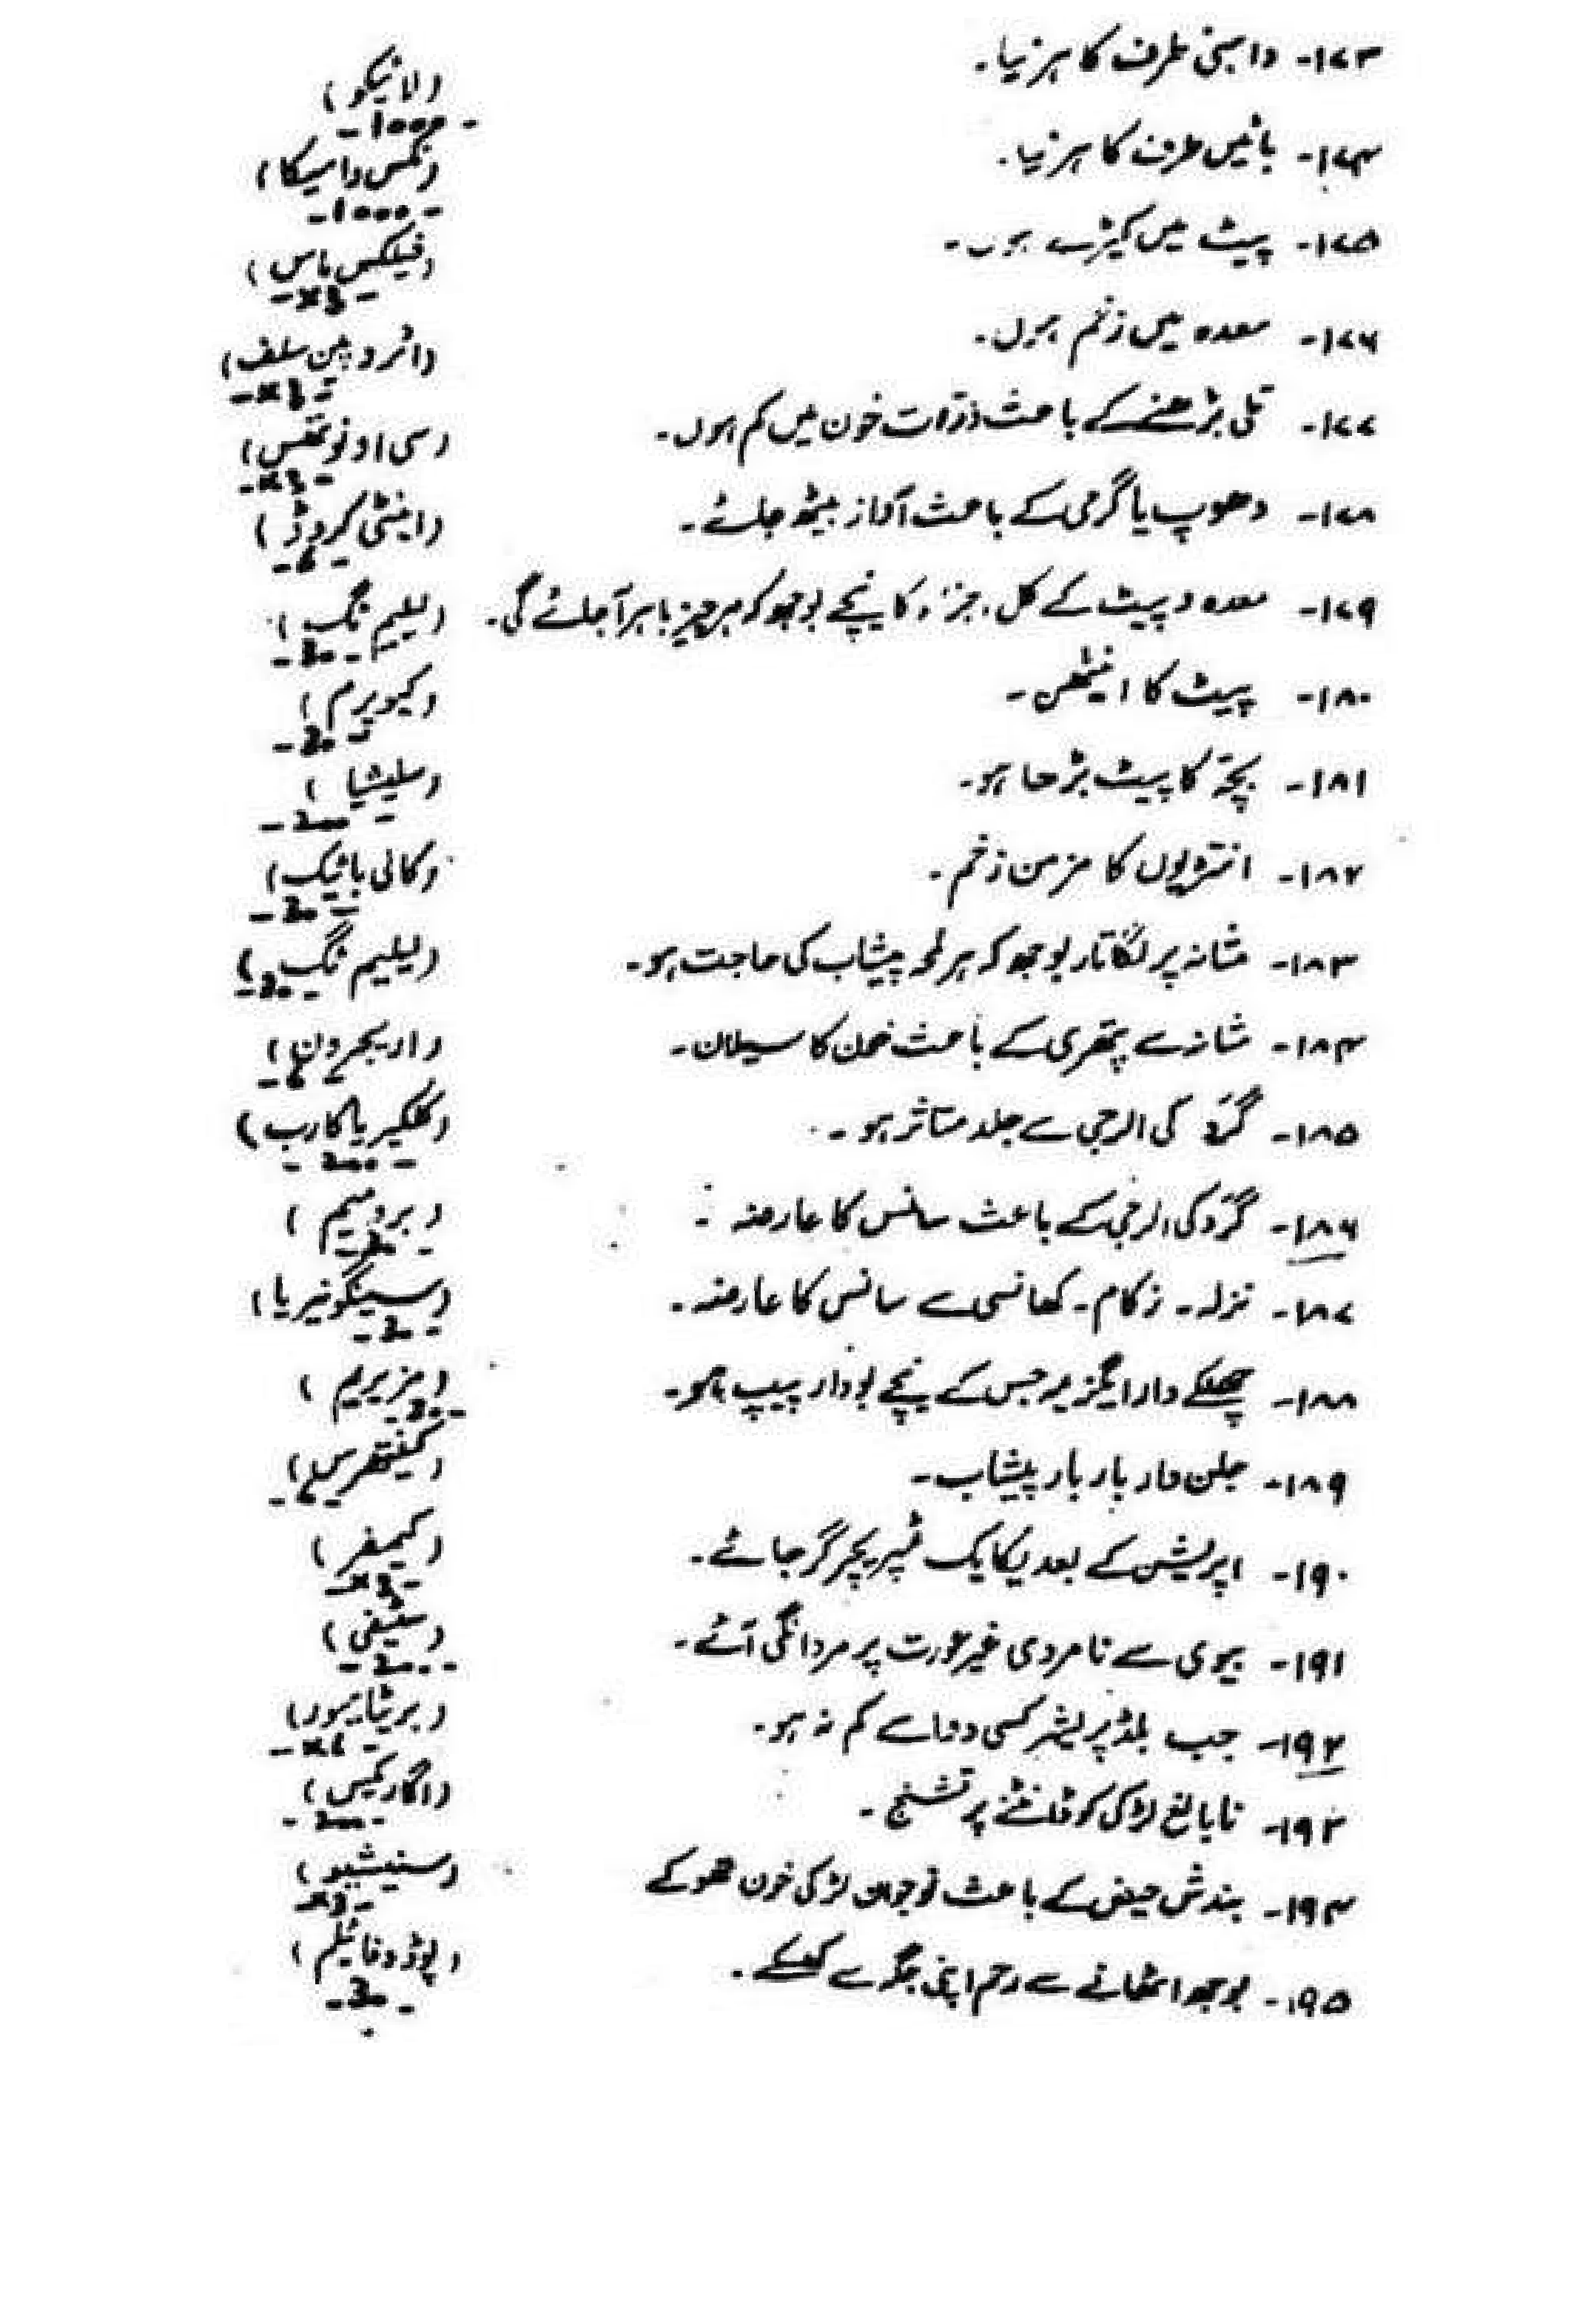 ۱۷۳- داہنی طرف کا ہرنیا۔ (لائیکو)
-1000-
۱۷۴- بائیں طرف کا ہرنیا۔ (نکس وامیکا)
-1000-
۱۷۵- پیٹ میں کیڑے ہوں۔ (فیلکس ماس)
-3x-
۱۷۶- معدہ میں زخم ہوں۔ (اٹروپین سلف)
۱۷۷- تلی بڑھنے کے باعث ذرّات خون میں کم ہوں۔ (سی اونوتھس)
۱۷۸- دھوپ یا گرمی کے باعث آواز بیٹھ جائے۔ (اینٹی کروڈ)
-6-
۱۷۹- معدہ و پیٹ کے کل جزُو کا نیچے بوجھ کہ ہر چیز باہر آجائے گی۔ (لیلیم ٹگ)
-30-
۱۸۰- پیٹ کا اینٹھن۔ (کیوپرم)
-30-
۱۸۱- بچّہ کا پیٹ بڑھا ہو۔ (سلیشیا)
-200-
۱۸۲- انتڑیوں کا مزمن زخم۔ (کالی بائیک)
-30-
۱۸۳- مثانہ پر لگاتار بوجھ کہ ہر لمحہ پیشاب کی حاجت ہو۔ (لیلیم ٹگ)
-30-
۱۸۴- مثانہ سے پتھری کے باعث خون کا سیلان۔
۱۸۵- گَرد کی الرجی سے جلد متاثر ہو۔ (کلکیریا کارب)
-200-
۱۸۶- گَرد کی الرجی کے باعث سانس کا عارضہ۔ (برومیم)
-30-
۱۸۷- نزلہ۔ زکام۔ کھانسی سے سانس کا عارضہ۔ (سینگونیریا)
-30-
۱۸۸- چھلکے دار ایگزیمہ جس کے نیچے بودار پیپ ہو۔ (مزیریم)
-30-
۱۸۹- جلن دار بار بار پیشاب۔ (کینتھرس)
-6-
۱۹۰- اپریشن کے بعد یکایک ٹمپریچر گر جائے۔ (کیمفر)
-3x-
۱۹۱- بیوی سے نامردی غیر عورت پر مردانگی آئے۔ (سٹیفی)
-200-
۱۹۲- جب بلڈ پریشر کسی دوا سے کم نہ ہو۔ (بریٹا میور)
-6x-
۱۹۳- نابالغ لڑکی کو ڈانٹنے پر تشنج۔ (اگاریکس)
-200-
۱۹۴- بندش حیض کے باعث نوجوان لڑکی خون تھوکے (سنیشیو)
-3x-
۱۹۵- بوجھ اٹھانے سے رحم اپنی جگہ سے کھسکے۔ (پوڈوفائیلم)
-30-